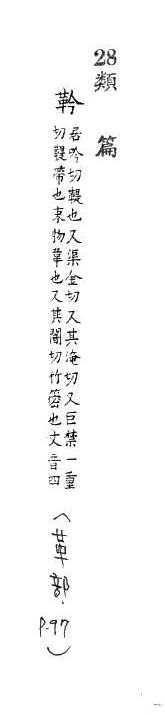 28 類篇
靲 居吟切鞮也又渠金切又其淹切又巨禁
切鞮帶也束物革也又其闇切竹篾也文一重音四
（革部．P.97）